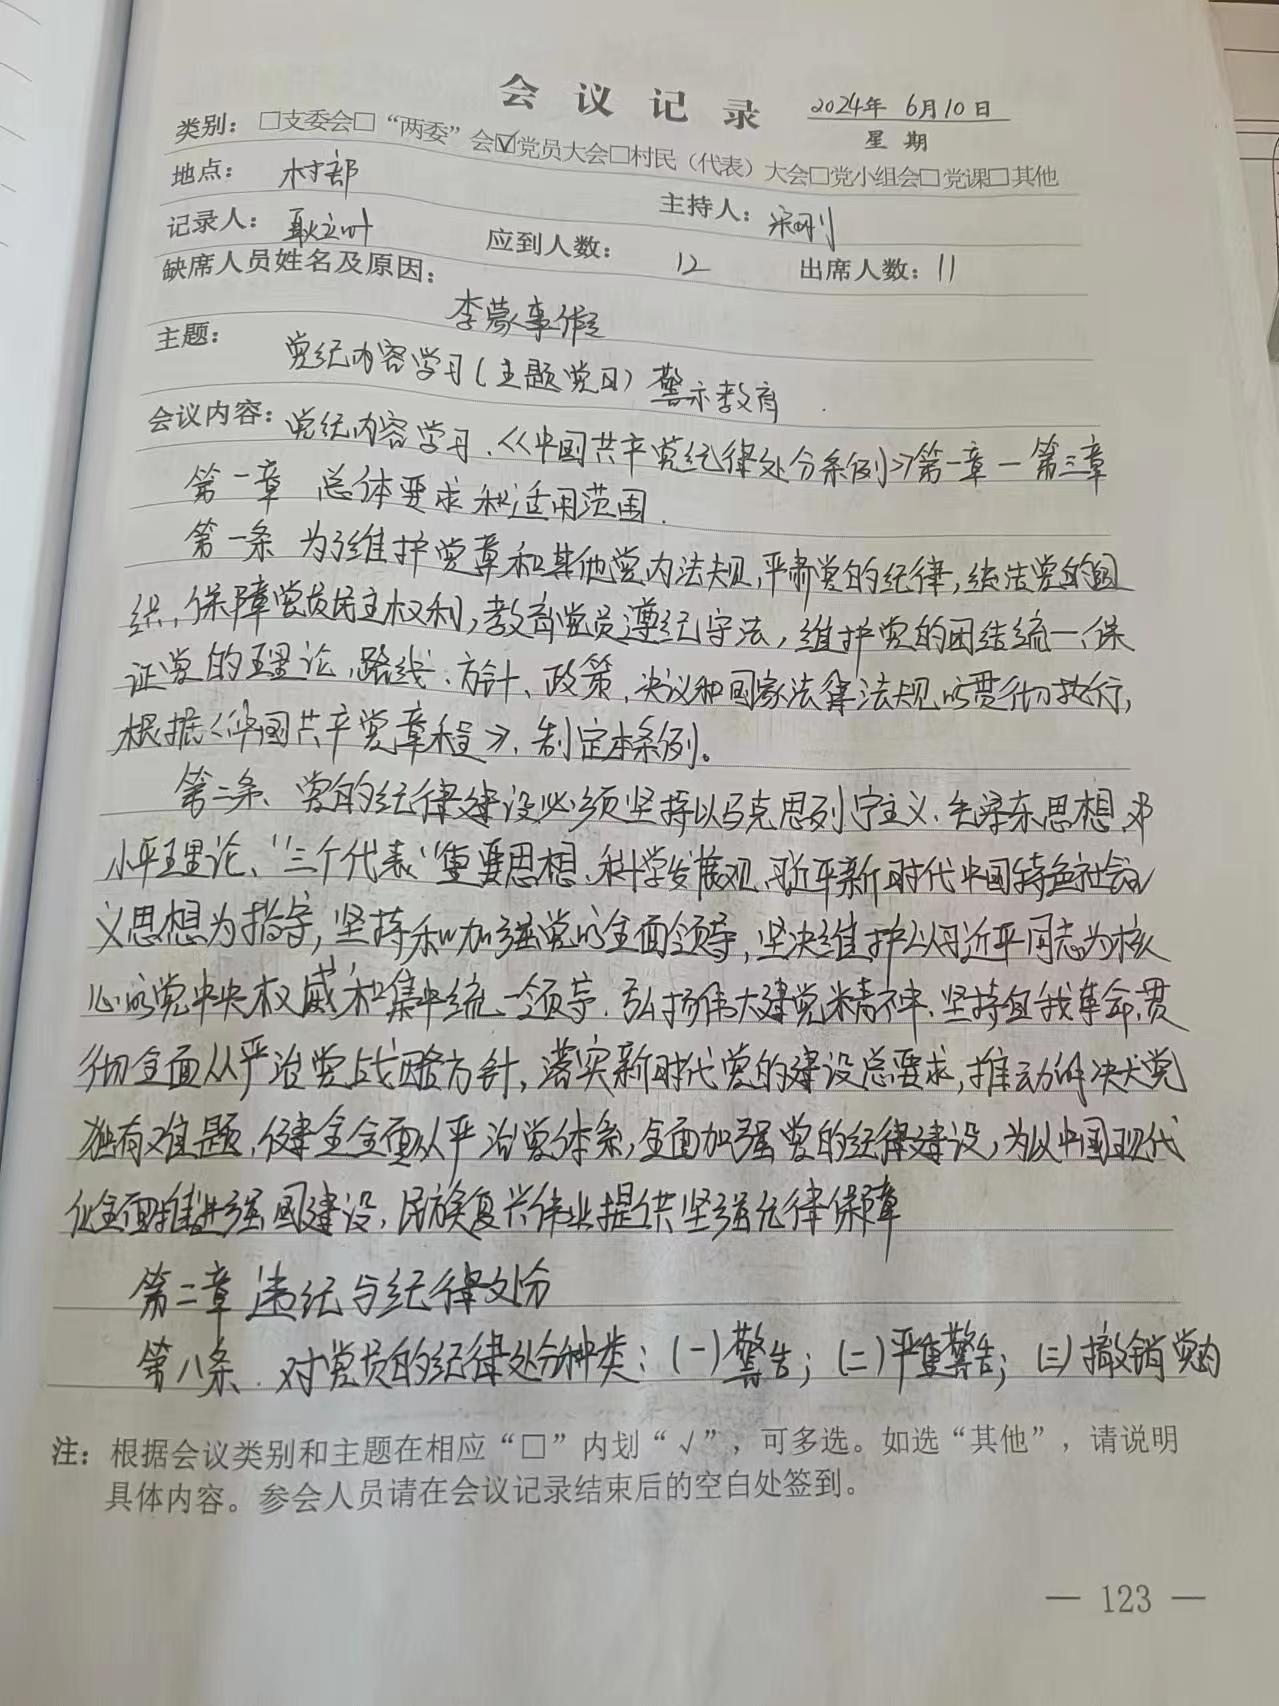 会议记录 2024年6月10日
星期
类别：□支委会□“两委”会☑党员大会□村民（代表）大会□党小组会□党课□其他
地点：村部
主持人：宋明
记录人：耿立叶 应到人数：12 出席人数：11
缺席人员姓名及原因：
李蒙事假
主题：党纪内容学习（主题党日）警示教育
会议内容：党纪内容学习．《中国共产党纪律处分条例》第一章—第三章
第一章 总体要求和适用范围．
第一条 为了维护党章和其他党内法规，严肃党的纪律，纯洁党的组
织，保障党员民主权利，教育党员遵纪守法，维护党的团结统一，保
证党的理论、路线、方针、政策、决议和国家法律法规的贯彻执行，
根据《中国共产党章程》，制定本条例。
第二条、党的纪律建设必须坚持以马克思列宁主义、毛泽东思想、邓
小平理论、“三个代表”重要思想、科学发展观、习近平新时代中国特色社会主
义思想为指导，坚持和加强党的全面领导，坚决维护以习近平同志为核
心的党中央权威和集中统一领导，弘扬伟大建党精神、坚持自我革命，贯
彻全面从严治党战略方针，落实新时代党的建设总要求，推动解决大党
独有难题，健全全面从严治党体系，全面加强党的纪律建设，为以中国现代
化全面推进强国建设、民族复兴伟业提供坚强纪律保障
第二章 违纪与纪律处分
第八条．对党员的纪律处分种类：（一）警告；（二）严重警告；（三）撤销党内
注：根据会议类别和主题在相应“□”内划“√”，可多选。如选“其他”，请说明
具体内容。参会人员请在会议记录结束后的空白处签到。
— 123 —